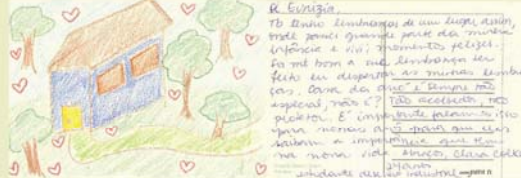 De Eunizia,
Eu tenho lembranças de um lugar assim,
onde passei grande parte da minha
infância e vivi momentos felizes.
Foi bom a sua lembrança ter
feito eu despertar as minhas lembran
ças. Casa da avó é sempre tão
especial, não é? Tão acolhedor,
protetor. É importante passarmos isso
para nossos para que eles
saibam a importância que tem
na nossa vida. abraços, Clara
anos
estudante design industrial